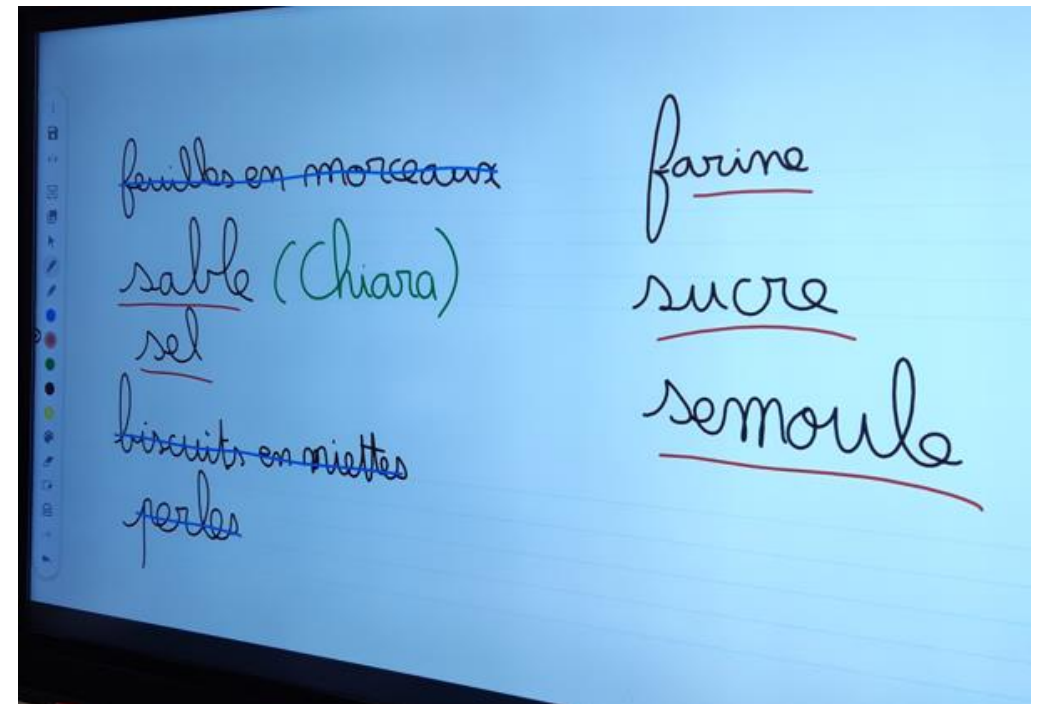 feuilles en morceaux
sable (Chiara)
sel
biscuits en miettes
perles
farine
sucre
semoule